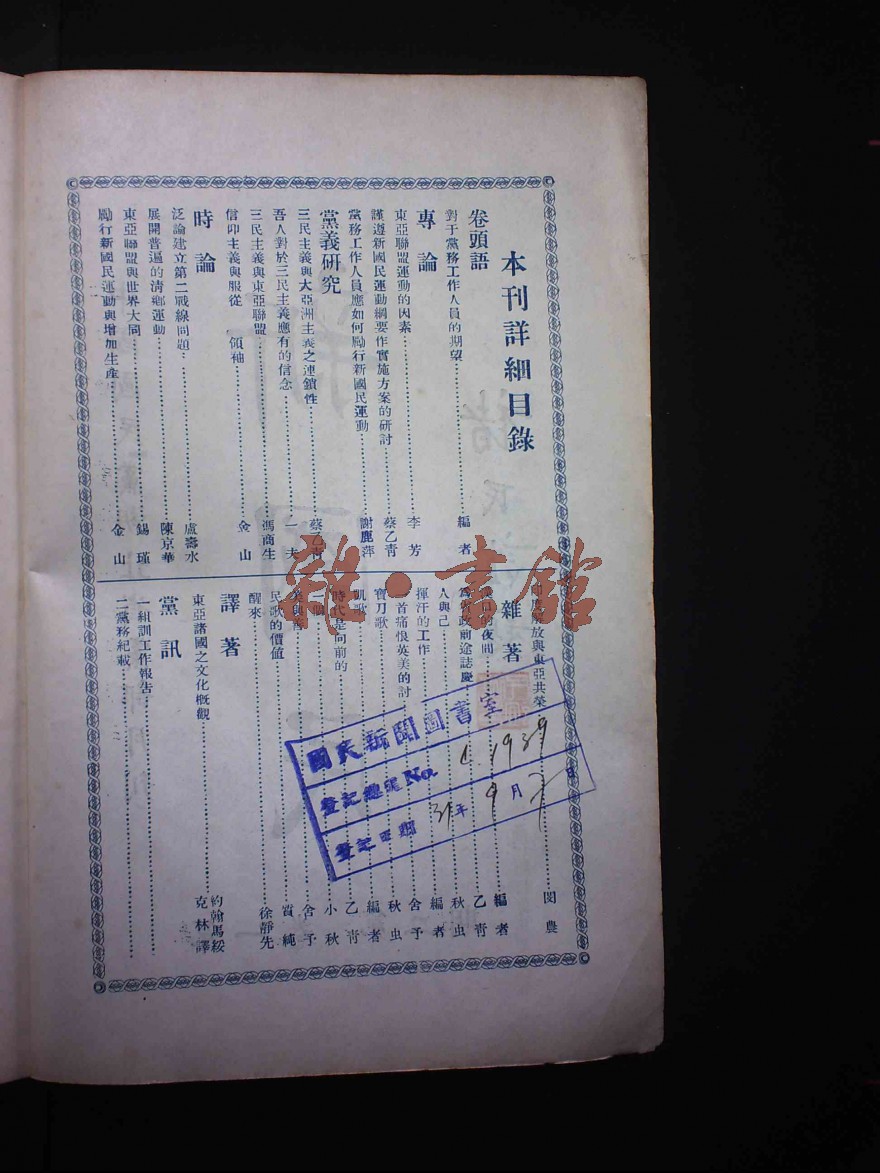 本刊詳細目錄
卷頭語
對于黨務工作人員的期望 編者
專論
東亞聯盟運動的因素 李芳
謹遵新國民運動綱要作實施方案的研討 蔡乙青
黨務工作人員應如何勵行新國民運動 謝鹿萍
黨義研究
三民主義與大亞洲主義之連鎖性 蔡乙青
吾人對於三民主義應有的信念 一夫
三民主義與東亞聯盟 馮商生
信仰主義與服從 領袖 金山
時論
泛論建立第二戰線問題 盧壽水
展開普遍的清鄉運動 陳京華
東亞聯盟與世界大同 錫瑾
勵行新國民運動與增加生產 金山
解放與東亞共榮 閔農
雜著
的夜間 編者
政前途誌慶 乙青
人與己 秋虫
揮汗的工作 編者
一首痛恨英美的討 舍予
寶刀歌 秋虫
凱歌 編者
時代是向前的 乙青
小秋
舍予
民歌的價值 質純
醒來 徐靜先
譯著
東亞諸國之文化概觀 約翰馬綏 克林譯
黨訊
一組訓工作報告
二黨務紀載
國民新聞圖書室
登記總號No. 1939
登記日期 31年9月 日
雜·書館